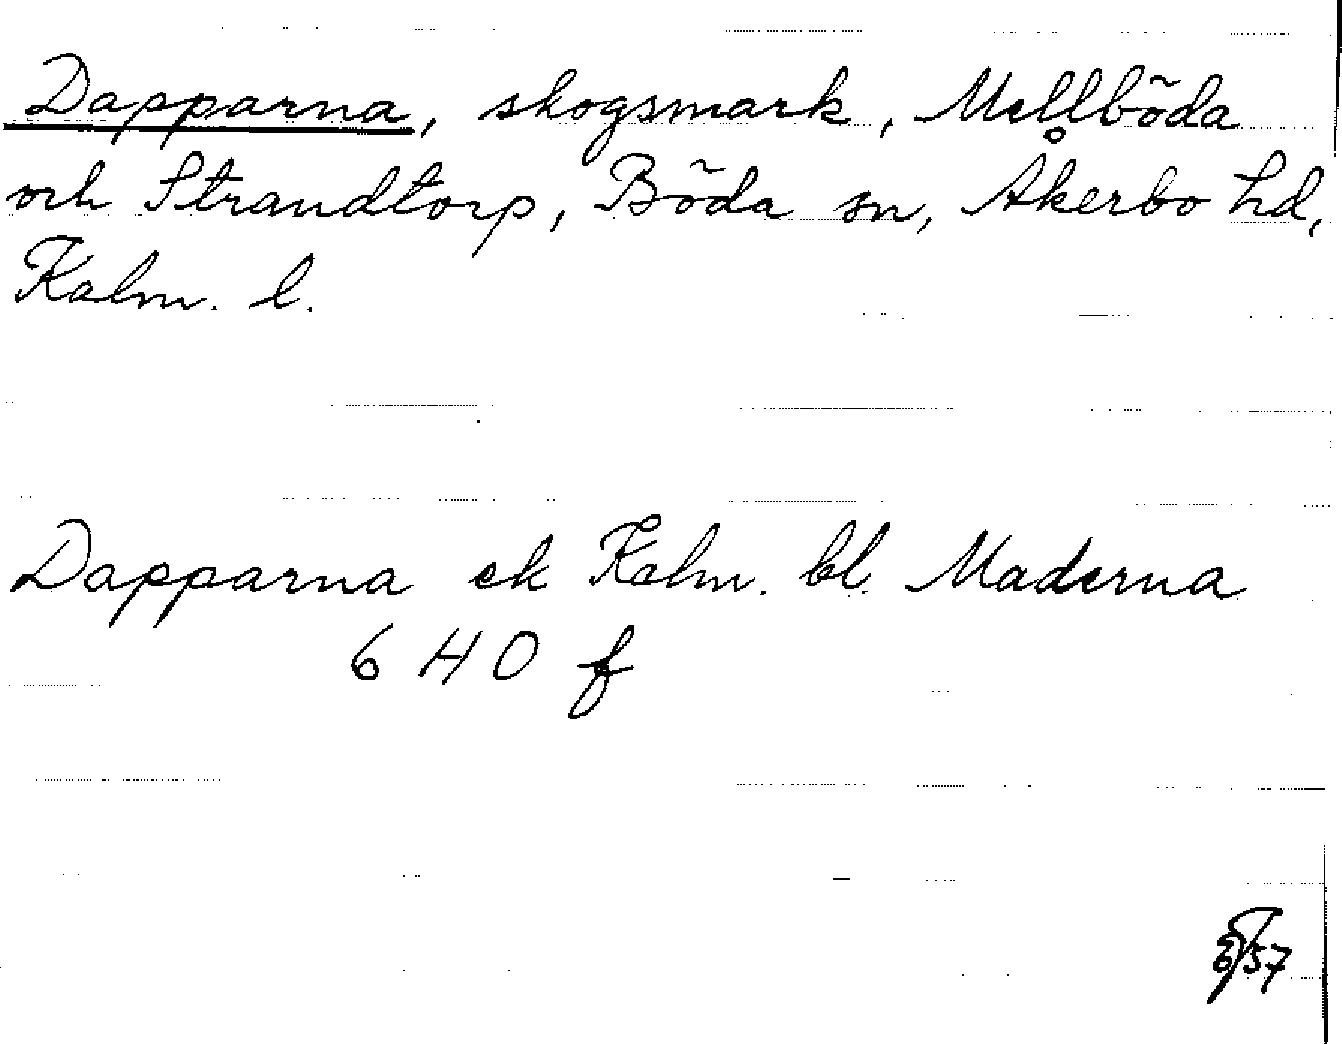 Dapparna, skogsmark, Mellböda
och Strandtorp, Böda sn, Åkerbo hd,
Kalm. l.
Dapparna ek Kalm. bl. Maderna
6 H O f
57